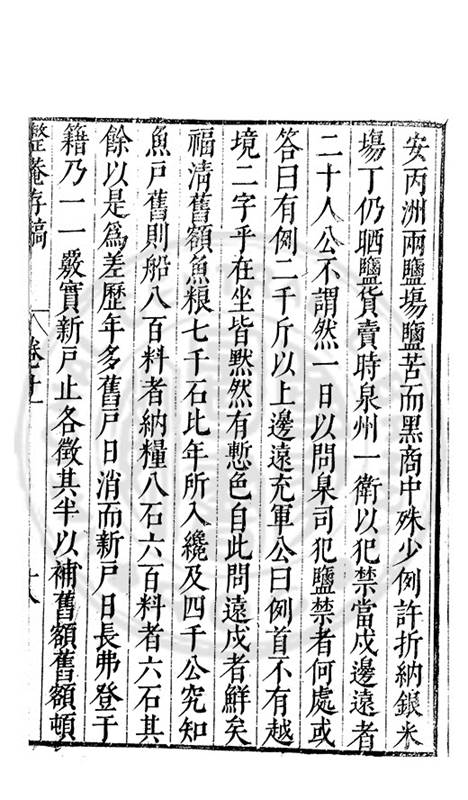 安丙洲兩鹽塲鹽苦而黑商中殊少例許折納銀米
塲丁仍晒鹽貨賣時泉州一衛以犯禁當戍邊遠者
二十人公不謂然一日以問臬司犯鹽禁者何處或
答曰有例二千斤以上邊遠充軍公曰例首不有越
境二字乎在坐皆默然有慙色自此問遠戍者鮮矣
福清舊額魚粮七千石比年所入纔及四千公究知
魚戸舊則船八百料者納糧八石六百料者六石其
餘以是爲差歷年多舊戸日消而新戸日長弗登于
籍乃一一覈實新戸止各徵其半以補舊額舊額頓
整菴存稿 卷十一 十八